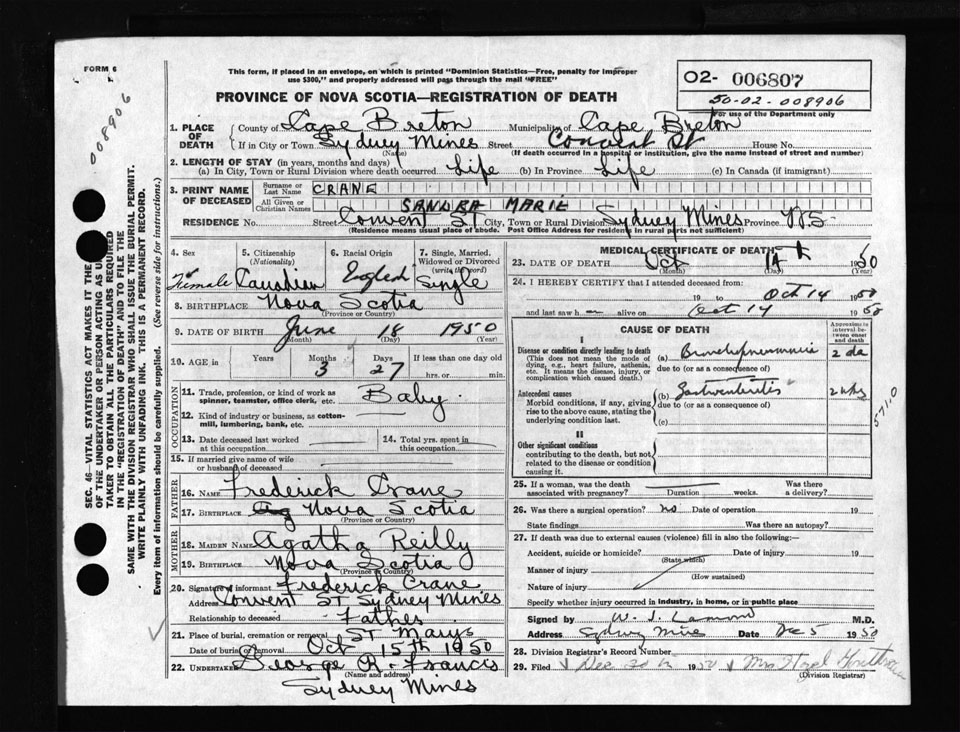 FORM 6
008906
This form, if placed in an envelope, on which is printed "Dominion Statistics—Free, penalty for improper
use $300," and properly addressed will pass through the mail "FREE"
PROVINCE OF NOVA SCOTIA—REGISTRATION OF DEATH
02- 006807
50-02-008906
For use of the Department only
SEC. 46—VITAL STATISTICS ACT MAKES IT THE
OF THE UNDERTAKER OR PERSON ACTING AS U
TAKER TO OBTAIN ALL THE PARTICULARS REQUIRED
IN THE "REGISTRATION OF DEATH" AND TO FILE THE
SAME WITH THE DIVISION REGISTRAR WHO SHALL ISSUE THE BURIAL PERMIT.
WRITE PLAINLY WITH UNFADING INK. THIS IS A PERMANENT RECORD.
Every item of information should be carefully supplied. (See reverse side for instructions.)
1. PLACE OF DEATH County of Cape Breton Municipality of Cape Breton
If in City or Town Sydney Mines Street Convent St House No.
(Name) (If death occurred in a hospital or institution, give the name instead of street and number)
2. LENGTH OF STAY (in years, months and days)
(a) In City, Town or Rural Division where death occurred Life (b) In Province Life (c) In Canada (if immigrant)
3. PRINT NAME OF DECEASED Surname or Last Name CRANE
All Given or Christian Names SANDRA MARIE
RESIDENCE No. Street Convent St City, Town or Rural Division Sydney Mines Province N.S.
(Residence means usual place of abode. Post Office Address for residents in rural parts not sufficient)
4. Sex Female
5. Citizenship (Nationality) Canadian
6. Racial Origin
7. Single, Married, Widowed or Divorced (write the word) Single
8. BIRTHPLACE Nova Scotia
(Province or Country)
9. DATE OF BIRTH June 18 1950
(Month) (Day) (Year)
10. AGE in Years Months 3 Days 27 If less than one day old
hrs. or min.
OCCUPATION
11. Trade, profession, or kind of work as spinner, teamster, office clerk, etc. Baby
12. Kind of industry or business, as cotton-mill, lumbering, bank, etc.
13. Date deceased last worked at this occupation
14. Total yrs. spent in this occupation
15. If married give name of wife or husband of deceased
FATHER
16. NAME Frederick Crane
17. BIRTHPLACE Nova Scotia
(Province or Country)
MOTHER
18. MAIDEN NAME Agatha Reilly
19. BIRTHPLACE Nova Scotia
(Province or Country)
20. Signature of informant Frederick Crane
Address Convent ST Sydney Mines
Relationship to deceased Father
21. Place of burial, cremation or removal ST Marys
Date of burial or removal Oct 15th 1950
22. UNDERTAKER George R. Francis
(Name and address)
Sydney Mines
MEDICAL CERTIFICATE OF DEATH
23. DATE OF DEATH Oct 14th 1950
(Month) (Day) (Year)
24. I HEREBY CERTIFY that I attended deceased from:
19 to Oct 14 1950
and last saw h alive on Oct 14 1950
CAUSE OF DEATH
Approximate interval between onset and death
I
Disease or condition directly leading to death
(This does not mean the mode of dying, e.g., heart failure, asthenia, etc. It means the disease, injury, or complication which caused death.)
(a) Bronchopneumonia 2 da
due to (or as a consequence of)
Antecedent causes
Morbid conditions, if any, giving rise to the above cause, stating the underlying condition last.
(b) Gastroenteritis 2 wks
due to (or as a consequence of)
(c)
571.0
II
Other significant conditions
contributing to the death, but not related to the disease or condition causing it.
25. If a woman, was the death associated with pregnancy? Duration weeks. Was there a delivery?
26. Was there a surgical operation? no Date of operation 19
State findings Was there an autopsy?
27. If death was due to external causes (violence) fill in also the following:—
Accident, suicide or homicide? Date of injury 19
(State which)
Manner of injury
(How sustained)
Nature of injury
Specify whether injury occurred in industry, in home, or in public place
Signed by W. J. Lamond M.D.
Address Sydney Mines Date Dec 5 1950
28. Division Registrar's Record Number
29. Filed Dec 20th 1950 Mrs
(Division Registrar)